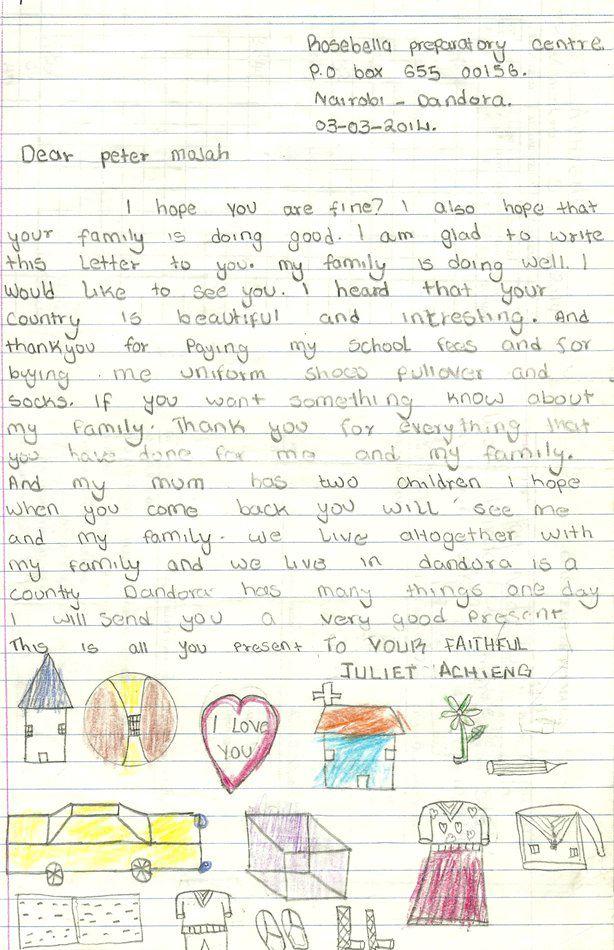 Rosebella preparatory centre.
P.O box 655 00156.
Nairobi - Dandora.
03-03-2014.
Dear peter molah
I hope you are fine? I also hope that
your family is doing good. I am glad to write
this Letter to you. my family is doing well. I
would like to see you. I heard that your
country is beautiful and intresting. And
thankyou for Paying my school fees and for
buying me uniform shoes pullover and
socks. If you want something know about
my family. Thank you for everything that
you have done for me and my family.
And my mum has two children I hope
when you come back you will see me
and my family. we live altogether with
my family and we live in dandora is a
country Dandora has many things one day
I will send you a very good present
This is all you present TO YOUR FAITHFUL
JULIET ACHIENG
I LOVE
YOU